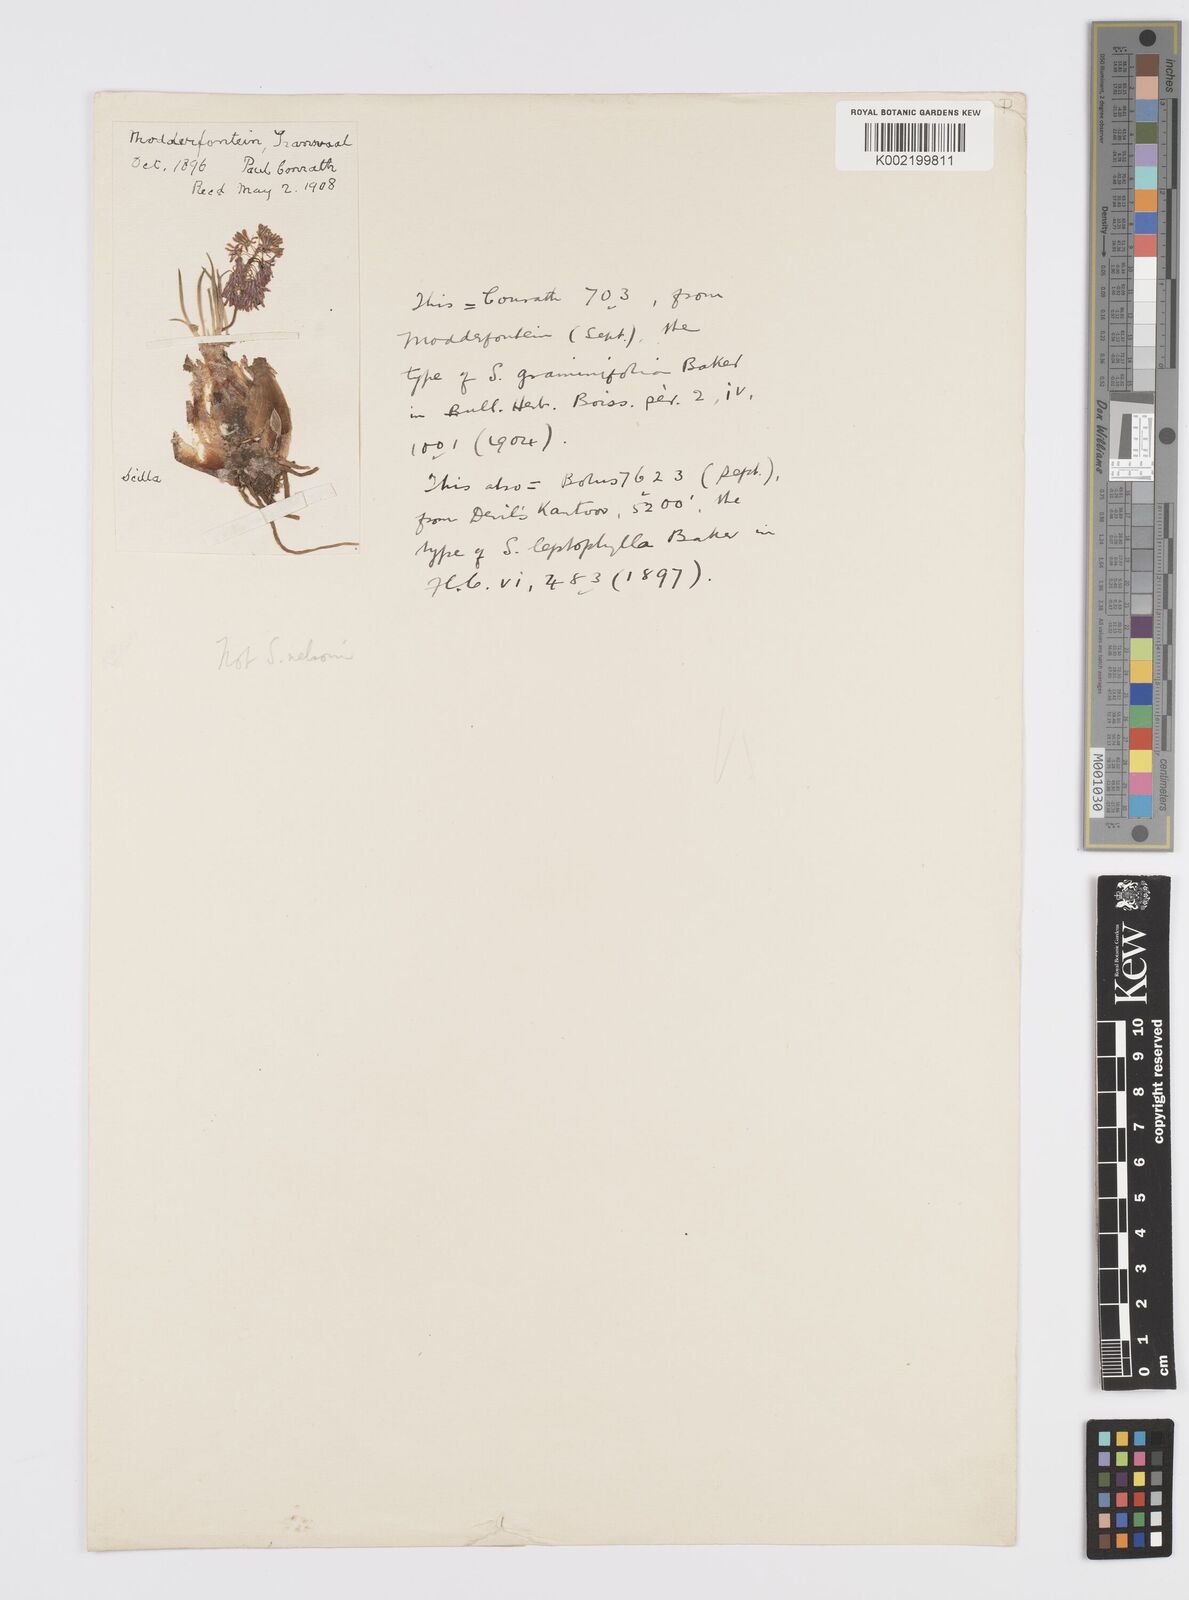 ROYAL BOTANIC GARDENS KEW
K002199811
Modderfontein, Transvaal
Oct. 1896 Paul Conrath
Recd May 2. 1908
Scilla
This = Conrath 703, from
Modderfontein (Sept.), the
type of S. graminifolia Baker
in Bull. Herb. Boiss. pér. 2, iv,
1001 (1904).
This also = Bolus 7623 (Sept.),
from Devil's Kantoor, 5200', the
type of S. leptophylla Baker in
Fl. C. vi, 483 (1897).
Not S. nelsonii
inches
D50 Illuminant, 2 degree observer
Density
Don Williams
All values are averages
centimeters
M001030
Royal Botanic Gardens
Kew
0 1 2 3 4 5 6 7 8 9 10
cm
copyright reserved